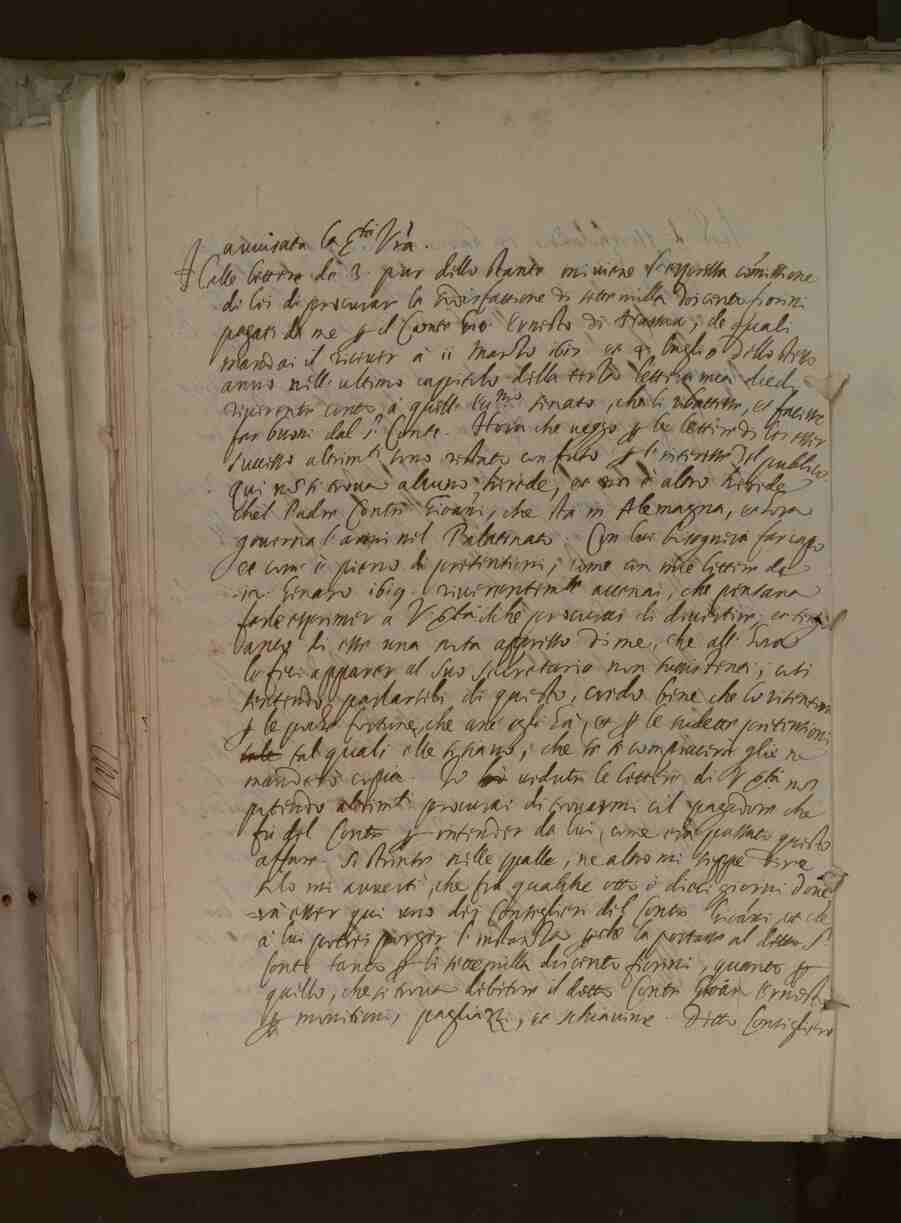 auuisata la Ser.tà Vra.
Colle lettere di 3. pur dello stante mi viene l'espressa com̃issione
di lei di procurar la sodisfattione di sette milla doicento fiorini
pagati da me ꝑ il Conte Gio: Ernesto di Nassau, de quali
mandai il ricever à 11 Marzo 161 et luglio dello stesso
anno nell'ultimo cappitolo della terza lettera mia diedi
riverente conto à quell' Ecc.mo Senato, che li ribattesse, et facesse
far buoni dal s.r Conte. Hora che veggo ꝑ le lettere di lei esser
successo altrim.ti sono restato confuso ꝑ l'interesse del publico
qui non si trova alcuno herede, et non è altro herede
ch'el Padre Conte Giovani, che sta in Alemagna, et hora
governa l'armi nel Palatinato. Con lui bisogniera far capo
et com' è pieno di pretentioni, come con mie lettere de
Genaro 1619 riverentem.te accenai, che pensava
farle esprimer à V. Ser.tà il che procurai di divertire, et
vance di esse una nota appresso di me, che all' hora
le feci apparer al suo secretario non sussistenti; così
sentendo parlarsele di questo, credo bene che lo ritentera
ꝑ le pretentioni
tal quali elle si siano, che se si compiacerà glie ne
manderò copia. Io veduta le lettere di V. Ser.tà non
potendo altrim.ti procurai di trovarmi col pagadore che
fù del Conte ꝑ intender da lui, come era passato questo
affare. Si strinse nelle spalle, ne altro mi seppe dire
solo mi avvertì, che frà qualche otto ò dieci giorni dove-
-va esser qui uno dei Consiglieri del Conte Giovani, et che
à lui potrei porger l'instanza perche la portasse al detto s.r
Conte tanto ꝑ li sette milla doicento fiorini, quanto ꝑ
quello, che si trova debitore il detto Conte Gioan Ernesto
ꝑ monitioni, pagliazzi, et schiavine. Detto Consigliero